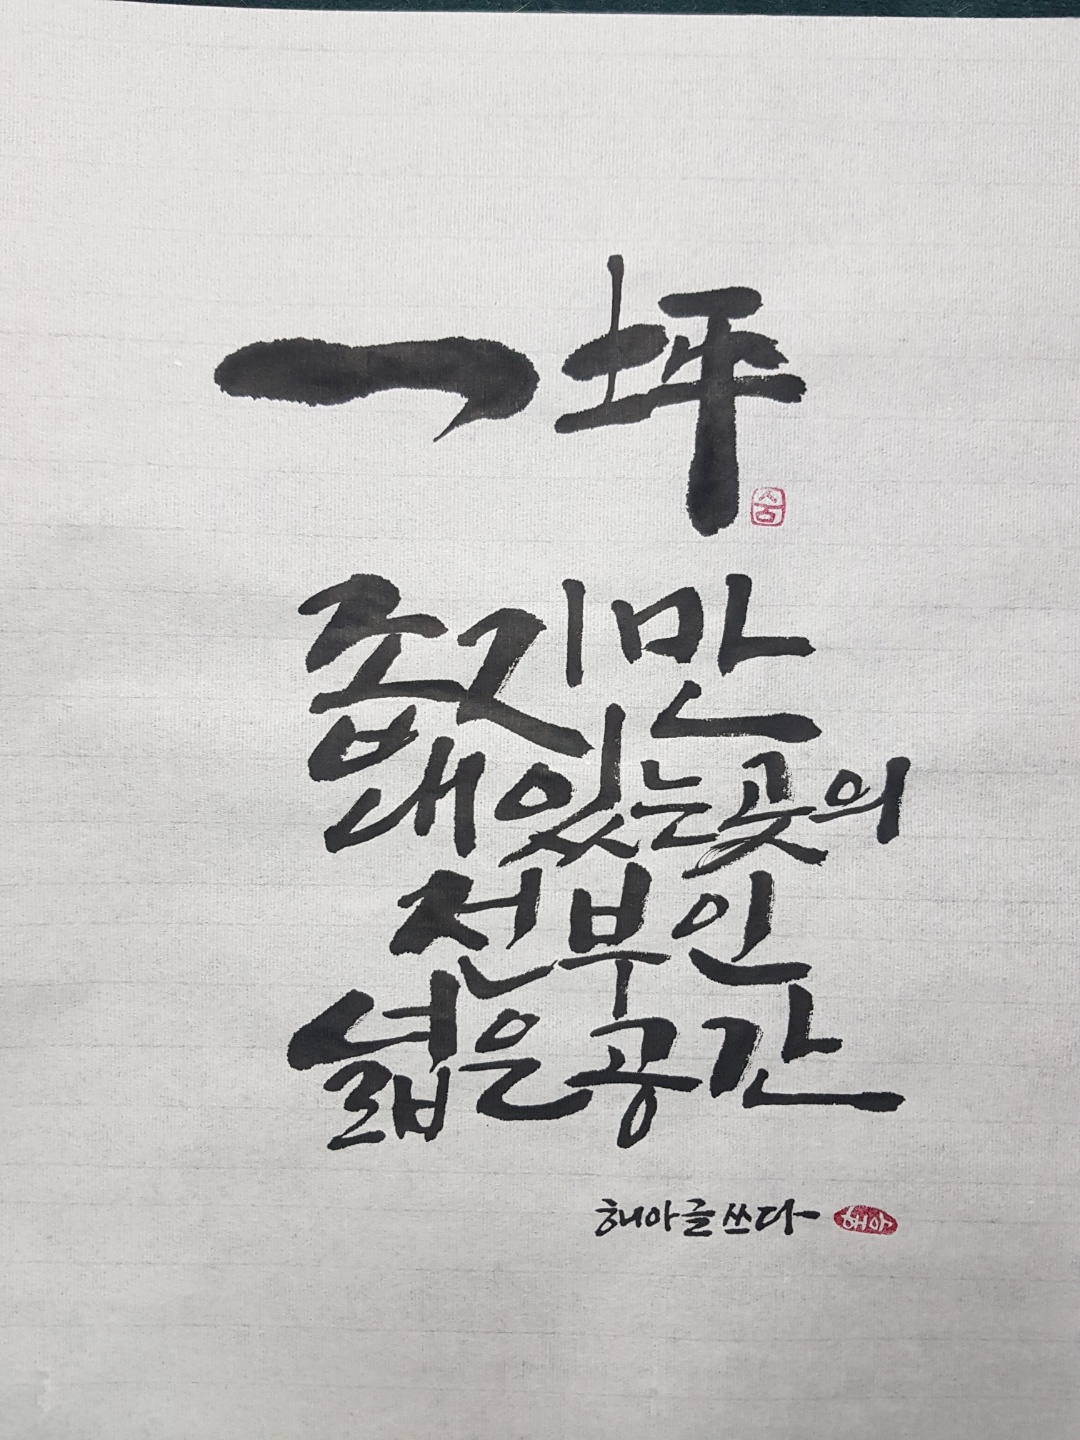 一坪
숨
좁지만
내 있는 곳의
전부인
넓은 공간
해아 글 쓰다
해아